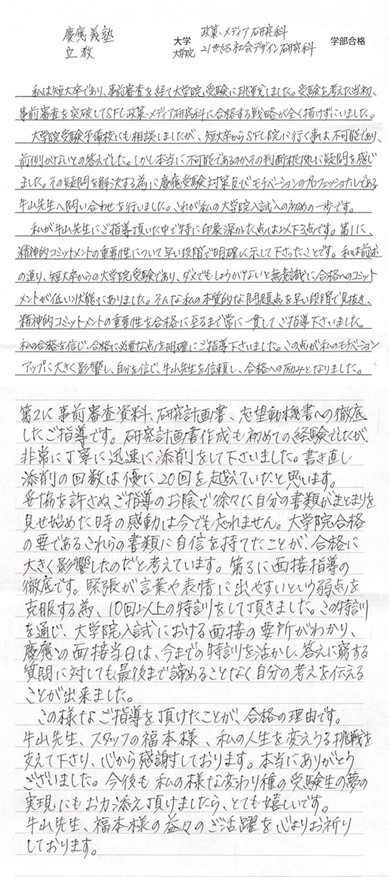 慶應義塾 大学 政策・メディア研究科 学部合格
立教 大学院 21世紀社会デザイン研究科
私は短大卒であり、事前審査を経て大学院受験に挑戦しました。受験を考えた当初、
事前審査を突破してSFC政策・メディア研究科に合格する戦略が全く描けずにいました。
大学院受験予備校にも相談しましたが、短大卒からSFC院に行く事は不可能であり、
前例がないとの答えでした。しかし本当に不可能であるのかその判断根拠に疑問を感じ
ました。その疑問を解決する為に慶應受験対策及びモチベーションのプロフェッショナルである
牛山先生へ問い合わせを行いました。これが私の大学院入試への初めの一歩です。
私が牛山先生にご指導頂いた中で特に印象深かった点は以下3点です。第1に、
精神的コミットメントの重要性について早い段階で明確に示して下さったことです。私は前述
の通り、短大卒からの大学院受験であり、ダメでもしょうがないと無意識に合格へのコミット
メントが低い状態にありました。そんな私の本質的な問題点を早い段階で見抜き、
精神的コミットメントの重要性を合格に至るまで常に一貫してご指導下さいました。
私の合格を信じ、合格に必要な点を明確にご指導下さいました。この点が私のモチベーション
アップに大きく影響し、自分を信じ、牛山先生を信頼し、合格への励みとなりました。
第2に事前審査資料、研究計画書、志望動機書への徹底
したご指導です。研究計画書作成も初めての経験でしたが、
非常に丁寧に迅速に添削をして下さいました。書き直し
添削の回数は優に20回を越えていたと思います。
妥協を許さぬご指導のお陰で徐々に自分の書類がまとまりを
見せ始めた時の感動は今でも忘れません。大学院合格
の要であるこれらの書類に自信を持てたことが、合格に
大きく影響したのだと考えています。第3に面接指導の
徹底です。緊張が言葉や表情に出やすいという弱点を
克服する為、10回以上の特訓をして頂きました。この特訓
を通じ、大学院入試における面接の要所がわかり、
慶應の面接当日は、今までの特訓を活かし、答えに窮する
質問に対しても最後まで諦めることなく自分の考えを伝える
ことが出来ました。
この様なご指導を頂けたことが、合格の理由です。
牛山先生、スタッフの福本様、私の人生を変えうる挑戦を
支えて下さり、心から感謝しております。本当にありがとう
ございました。今後も私の様な変わり種の受験生の夢の
実現にもお力添え頂けましたら、とても嬉しいです。
牛山先生、福本様の益々のご活躍を心よりお祈り
しております。